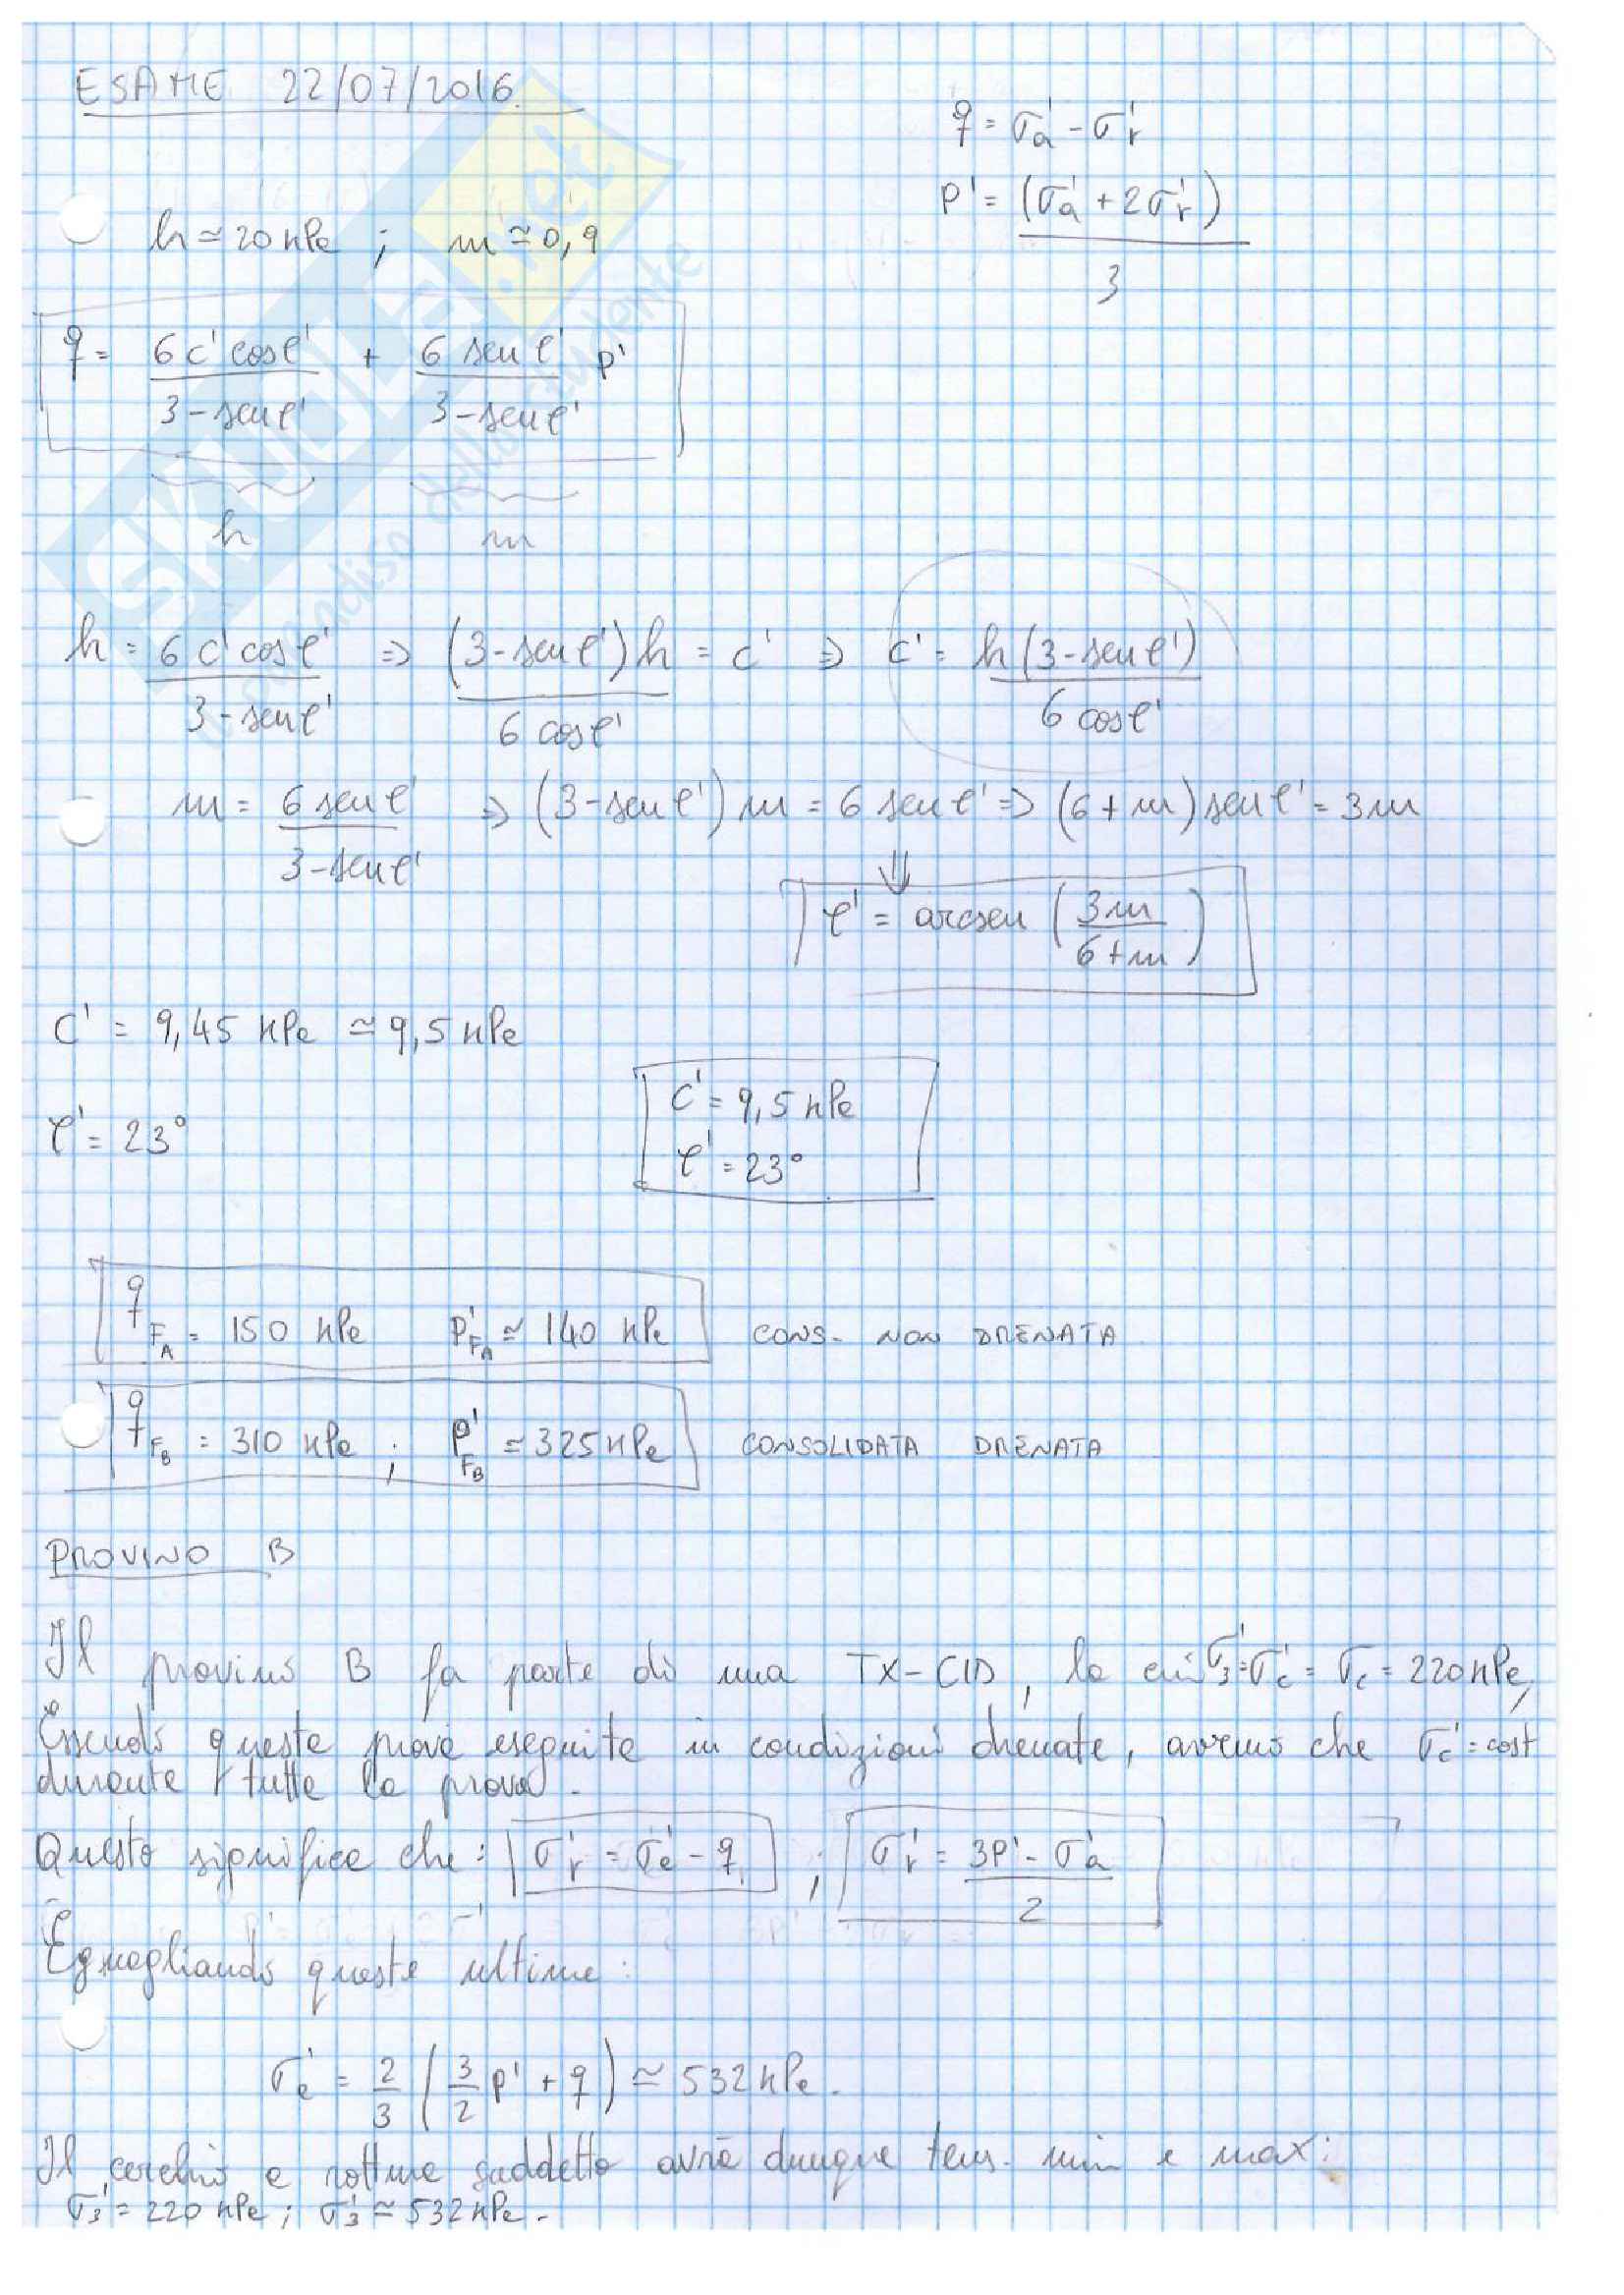 ESAME 22/07/2016
q = σ'a - σ'r
p' = (σ'a + 2σ'r) / 3
h ≃ 20 kPa ; m ≃ 0,9
q = 6 c' cosφ' / 3 - senφ' + 6 senφ' / 3 - senφ' p'
h m
h = 6 c' cosφ' / 3 - senφ' ⇒ (3 - senφ') h / 6 cosφ' = c' ⇒ c' = h (3 - senφ') / 6 cosφ'
m = 6 senφ' / 3 - senφ' ⇒ (3 - senφ') m = 6 senφ' ⇒ (6 + m) senφ' = 3m
⇓
φ' = arcsen (3m / 6+m)
c' = 9,45 kPa ≃ 9,5 kPa
c' = 9,5 kPa
φ' = 23°
φ' = 23°
qFA = 150 kPa p'FA ≃ 140 kPa CONS. NON DRENATA
qFB = 310 kPa ; p'FB ≃ 325 kPa CONSOLIDATA DRENATA
PROVINO B
Il provino B fa parte di una TX-CID, la cui σ'3 = σ'c = σc = 220 kPa,
Essendo queste prove eseguite in condizioni drenate, avremo che σ'c = cost
durante tutta la prova.
Questo significa che: σ'r = σ'a - q ; σ'r = 3p' - σ'a / 2
Eguagliando queste ultime:
σ'a = 2/3 (3/2 p' + q) ≃ 532 kPa.
Il cerchio a rottura suddetto avrà dunque tens. min e max:
σ'3 = 220 kPa ; σ'3 ≃ 532 kPa.
SKUOLA.net
il paradiso dello studente